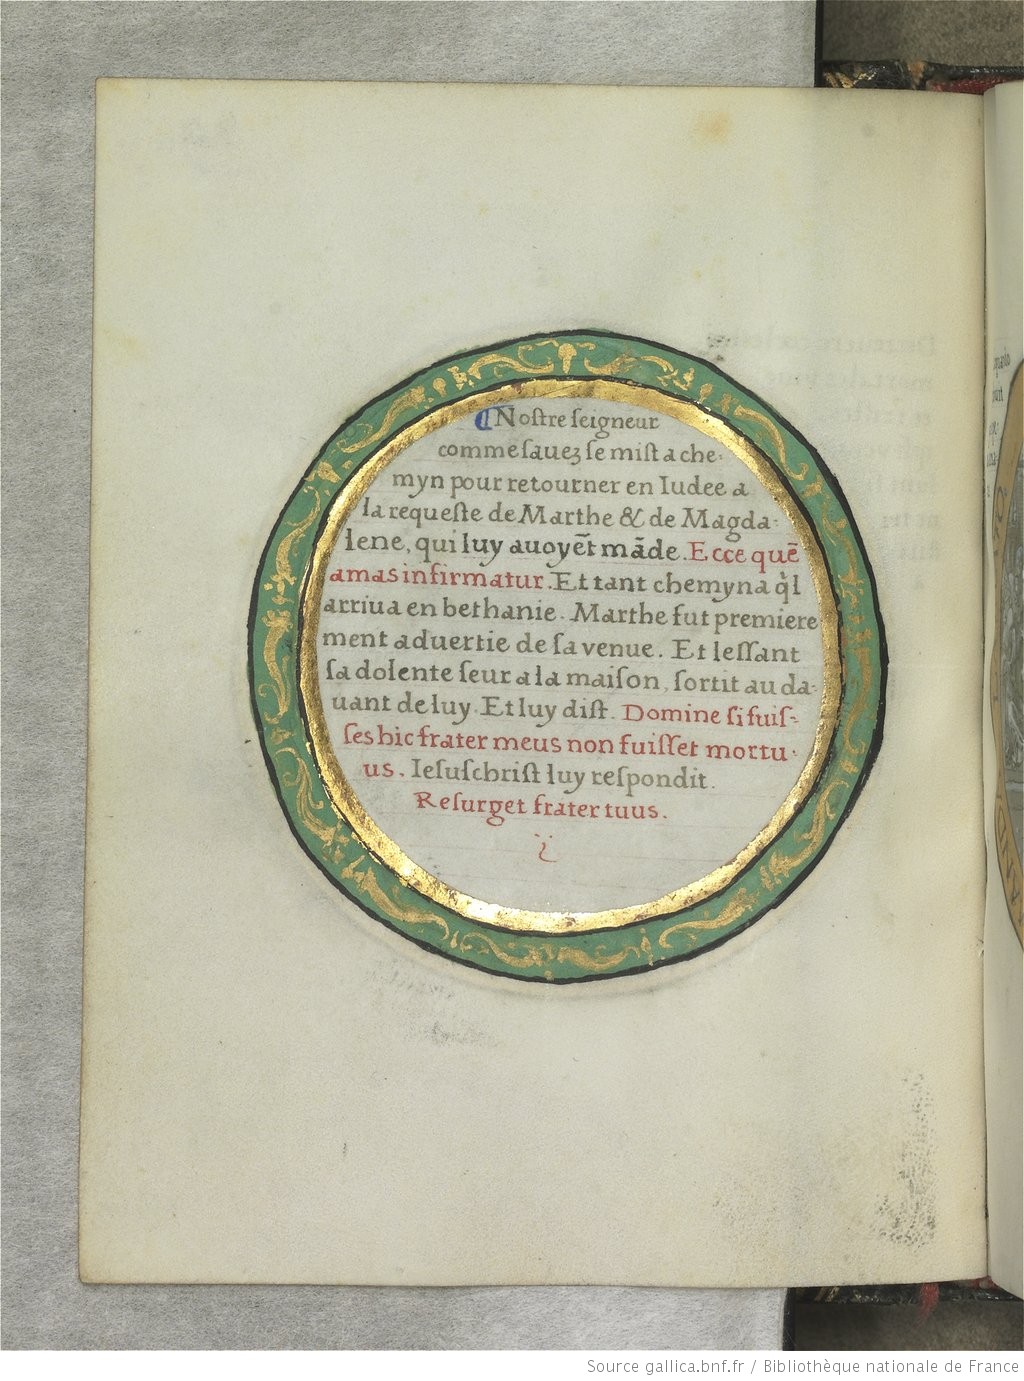 ¶Nostre seigneur
comme sauez se mist a che-
myn pour retourner en Iudee a
la requeste de Marthe & de Magda-
lene, qui luy auoyēt māde. Ecce quē
amas infirmatur. Et tant chemyna q̍l
arriua en bethanie. Marthe fut premiere
ment aduertie de sa venue. Et lessant
sa dolente seur a la maison, sortit au da-
uant de luy. Et luy dist. Domine si fuis-
ses hic frater meus non fuisset mortu-
us. Iesuschrist luy respondit.
Resurget frater tuus.
Source gallica.bnf.fr / Bibliothèque nationale de France